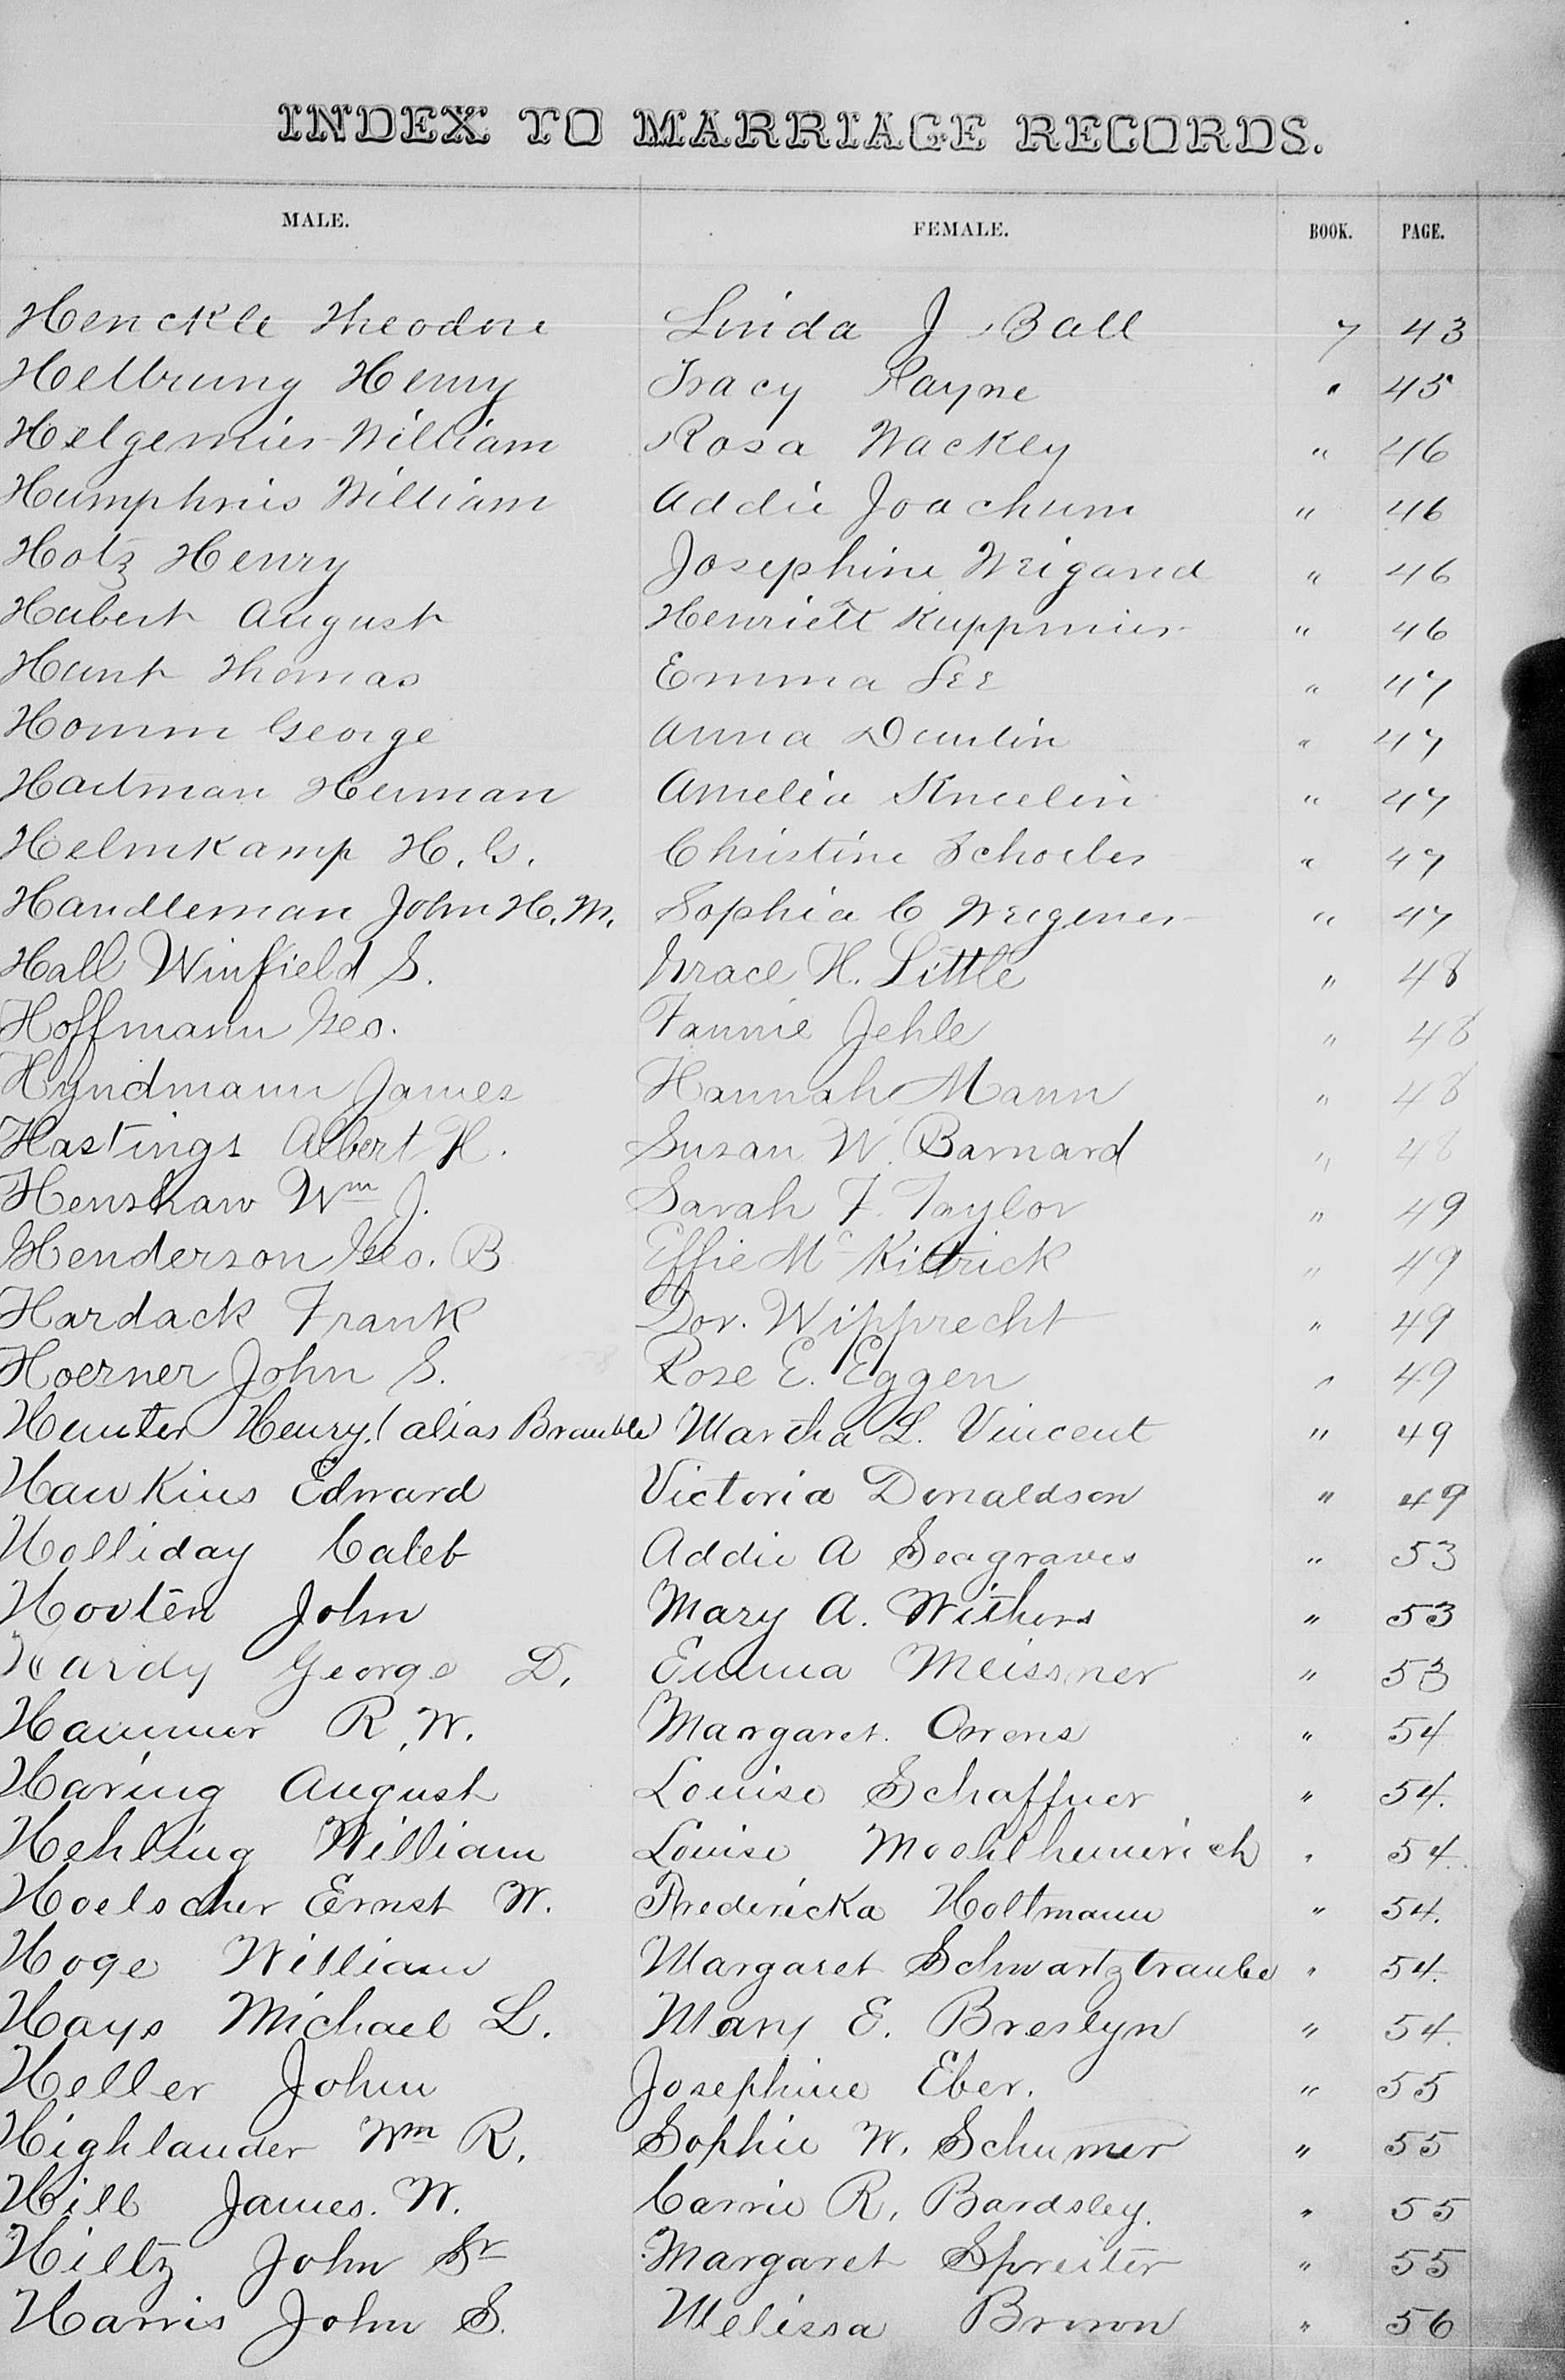 INDEX TO MARRIAGE RECORDS.
MALE. FEMALE. BOOK. PAGE.
Henckle Theodore Linda J Ball 7 43
Helbrung Henry Tracy Payne " 45
Helgemier William Rosa Wackley " 46
Humphries William Addie Joachum " 46
Hotz Henry Josephine Weigand " 46
Hubert August Henriett Kuppmier " 46
Hunt Thomas Emma Lee " 47
Homm George Anna Dunlin " 47
Hartman Herman Amelia " 47
Helmkamp H. G. Christine Schoeber " 47
Handleman John H. M. Sophia C Wegener " 47
Hall Winfield S. Grace H. Little " 48
Hoffmann Geo. Fannie Jehle " 48
Hyndmann James Hannah Mann " 48
Hastings Albert H. Susan W. Barnard " 48
Henshaw Wm J. Sarah F. Taylor " 49
Henderson Geo. B Effie Mc Kittrick " 49
Hardack Frank Dor. Wipprecht " 49
Hoerner John S. Rose E. Eggen " 49
Hunter Henry (alias Bramble) Martha L. Vincent " 49
Hawkins Edward Victoria Donaldson " 49
Holliday Caleb Addie A Seagraves " 53
Hooten John Mary A. Withers " 53
Hardy George D. Emma Meissner " 53
Hammer R. W. Margaret Owens " 54
Haring August Louise Schaffner " 54.
Hehling William Louise " 54.
Hoelscher Ernst W. Fredericka Holtmann " 54.
Hoge William Margaret Schwartztraube " 54.
Hays Michael L. Mary E. Breslyn " 54.
Heller John Josephine Eber. " 55
Highlander Wm R. Sophie W. Schumer " 55
Hill James. W. Carrie R. Bardsley. " 55
Hiltz John Sr Margaret Spreiter " 55
Harris John S. Melissa Brown " 56